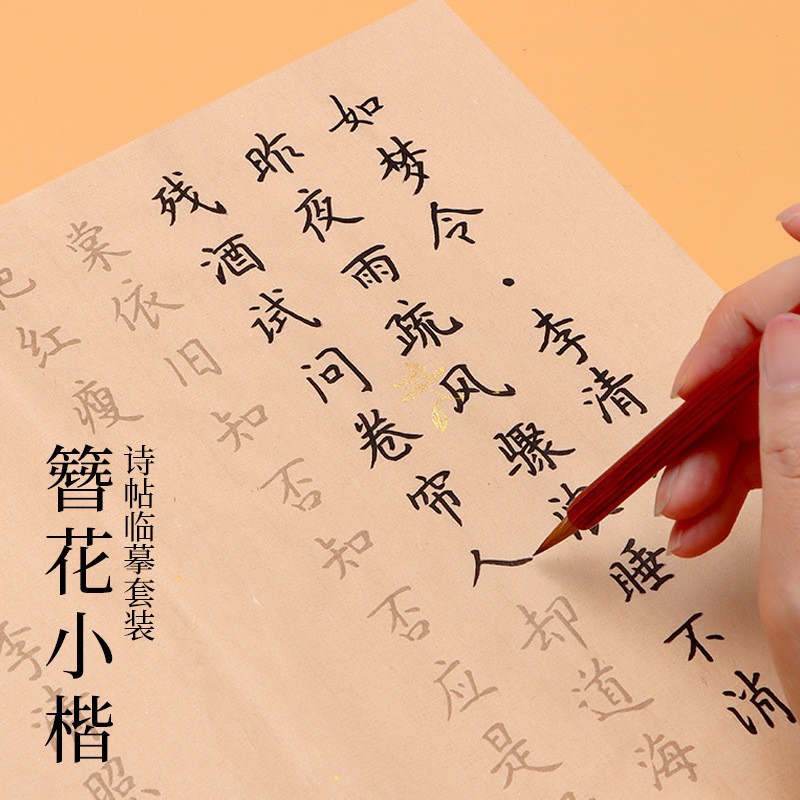 如梦令·李清
昨夜雨疏风骤浓睡不消
残酒试问卷帘人却道海
棠依旧知否知否应是
肥红瘦
李清照
诗帖临摹套装
簪花小楷